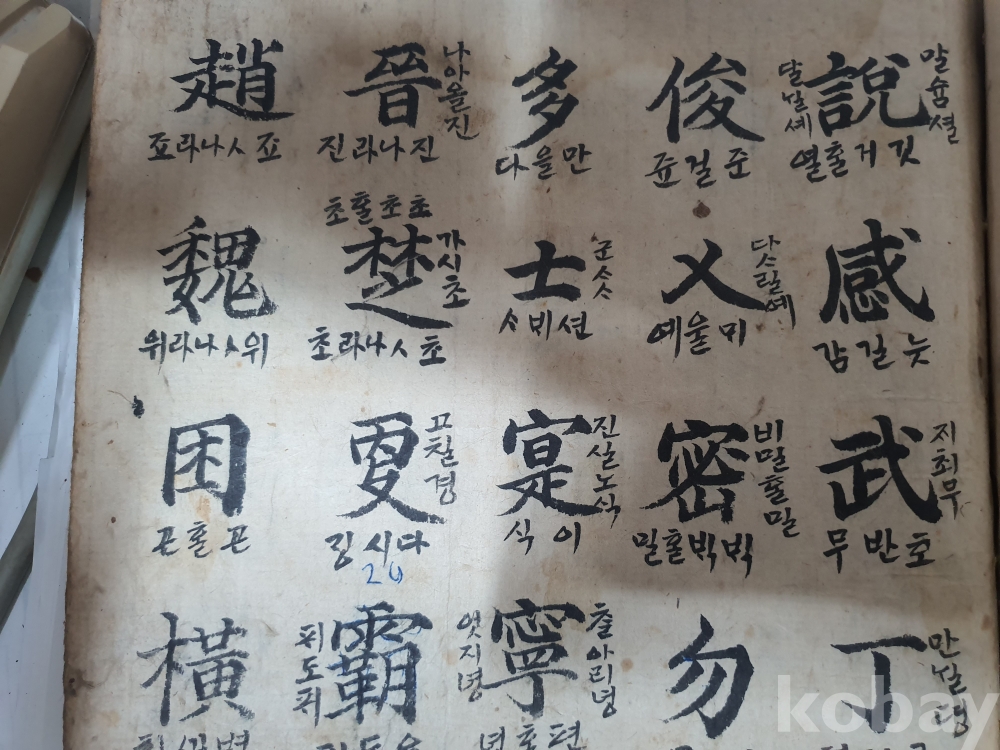 說
말슘셜
달낼셰
열홀거깃
感
감길늣
武
지최무
무반호
丁
俊
쥰걸준
乂
예울미
密
비밀홀밀
밀홀빅빅
勿
多
다을만
士
군ᄉᆞᄉᆞ
ᄉᆞ비션
寔
진실노식
식이
寧
출아리녕
엇지녕
녕호편
晉
나아올진
진라나진
초홀초초
楚
가시초
초라나ᄉᆞ초
更
고칠경
깅시다
霸
趙
죠라나ᄉᆞ죠
魏
위라나ᄉᆞ위
困
곤홀곤
橫
kobay